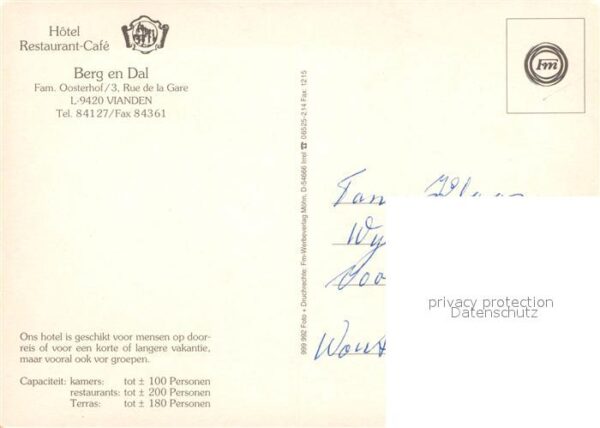 Hôtel
Restaurant-Café
Berg en Dal
Fam. Oosterhof/3, Rue de la Gare
L-9420 VIANDEN
Tel. 84127/Fax 84361
Ons hotel is geschikt voor mensen op door-
reis of voor een korte of langere vakantie,
maar vooral ook ver groepen.
Capaciteit: kamers: tot ± 100 Personen
restaurants: tot ± 200 Personen
Terras: tot ± 180 Personen
999 992 Foto + Druchrechte: Fm-Werbeverlag Möhn, D-54666 Irrel ☎ 06525-214 Fax 1215
Fm
Fam
privacy protection
Datenschutz